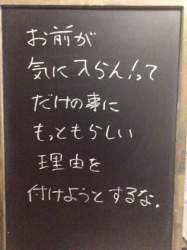 お前が
気に入らん!って
だけの事に
もっともらしい
理由を
付けようとするな.